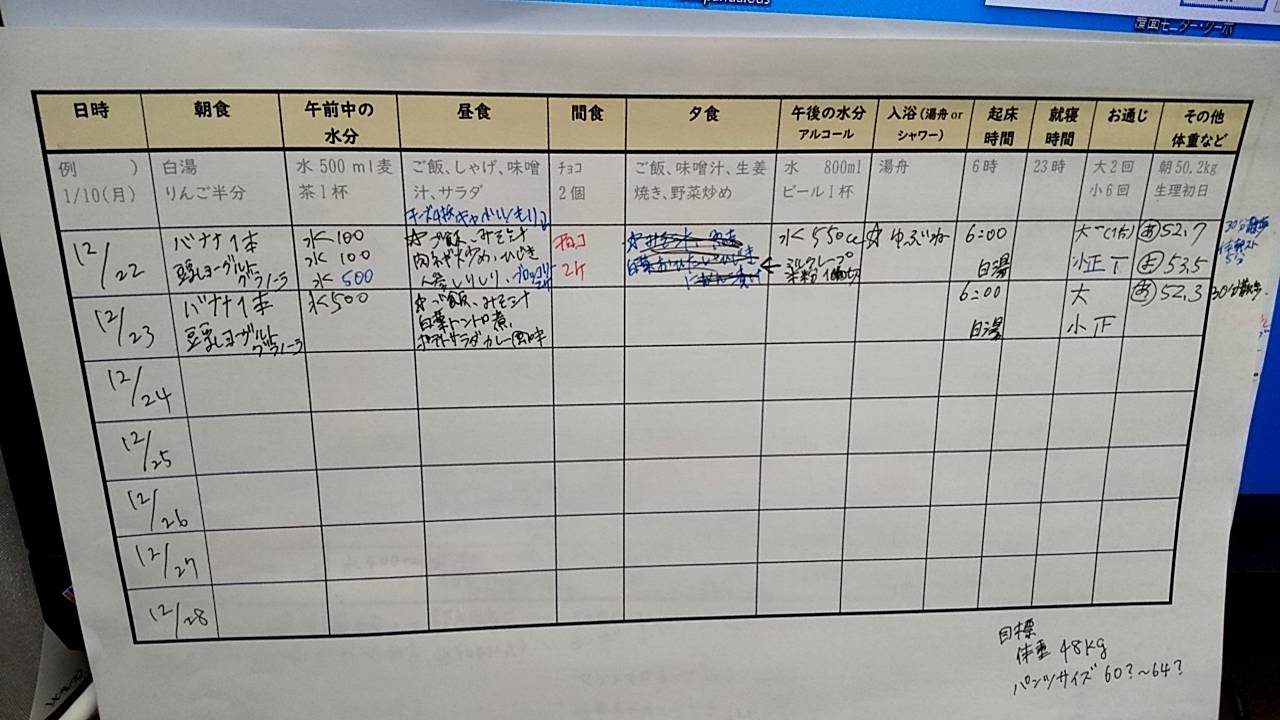 日時 朝食 午前中の水分 昼食 間食 夕食 午後の水分 アルコール 入浴(湯舟 or シャワー) 起床時間 就寝時間 お通じ その他 体重など
例 ) 白湯 水 500 ml麦 ご飯、しゃけ、味噌 チョコ ご飯、味噌汁、生姜 水 800ml 湯舟 6時 23時 大2回 朝50.2kg
1/10(月) りんご半分 茶1杯 汁、サラダ 2個 焼き、野菜炒め ビール1杯 小6回 生理初日
12/22 バナナ1本 水100 ☆ご飯、みそ汁 チョコ 水550cc ☆ゆぶね 6:00 大 52.7
豆乳ヨーグルト 水100 2ケ ミルクレープ 白湯 小正T 53.5
グラノーラ 水500
12/23 バナナ1本 水500 ☆ご飯、みそ汁 6:00 大 52.3 30分散歩
豆乳ヨーグルト 白菜トントロ煮、 白湯 小正
グラノーラ ポテトサラダカレー風味
12/24
12/25
12/26
12/27
12/28
目標
体重 48kg
パンツサイズ 60?~64?